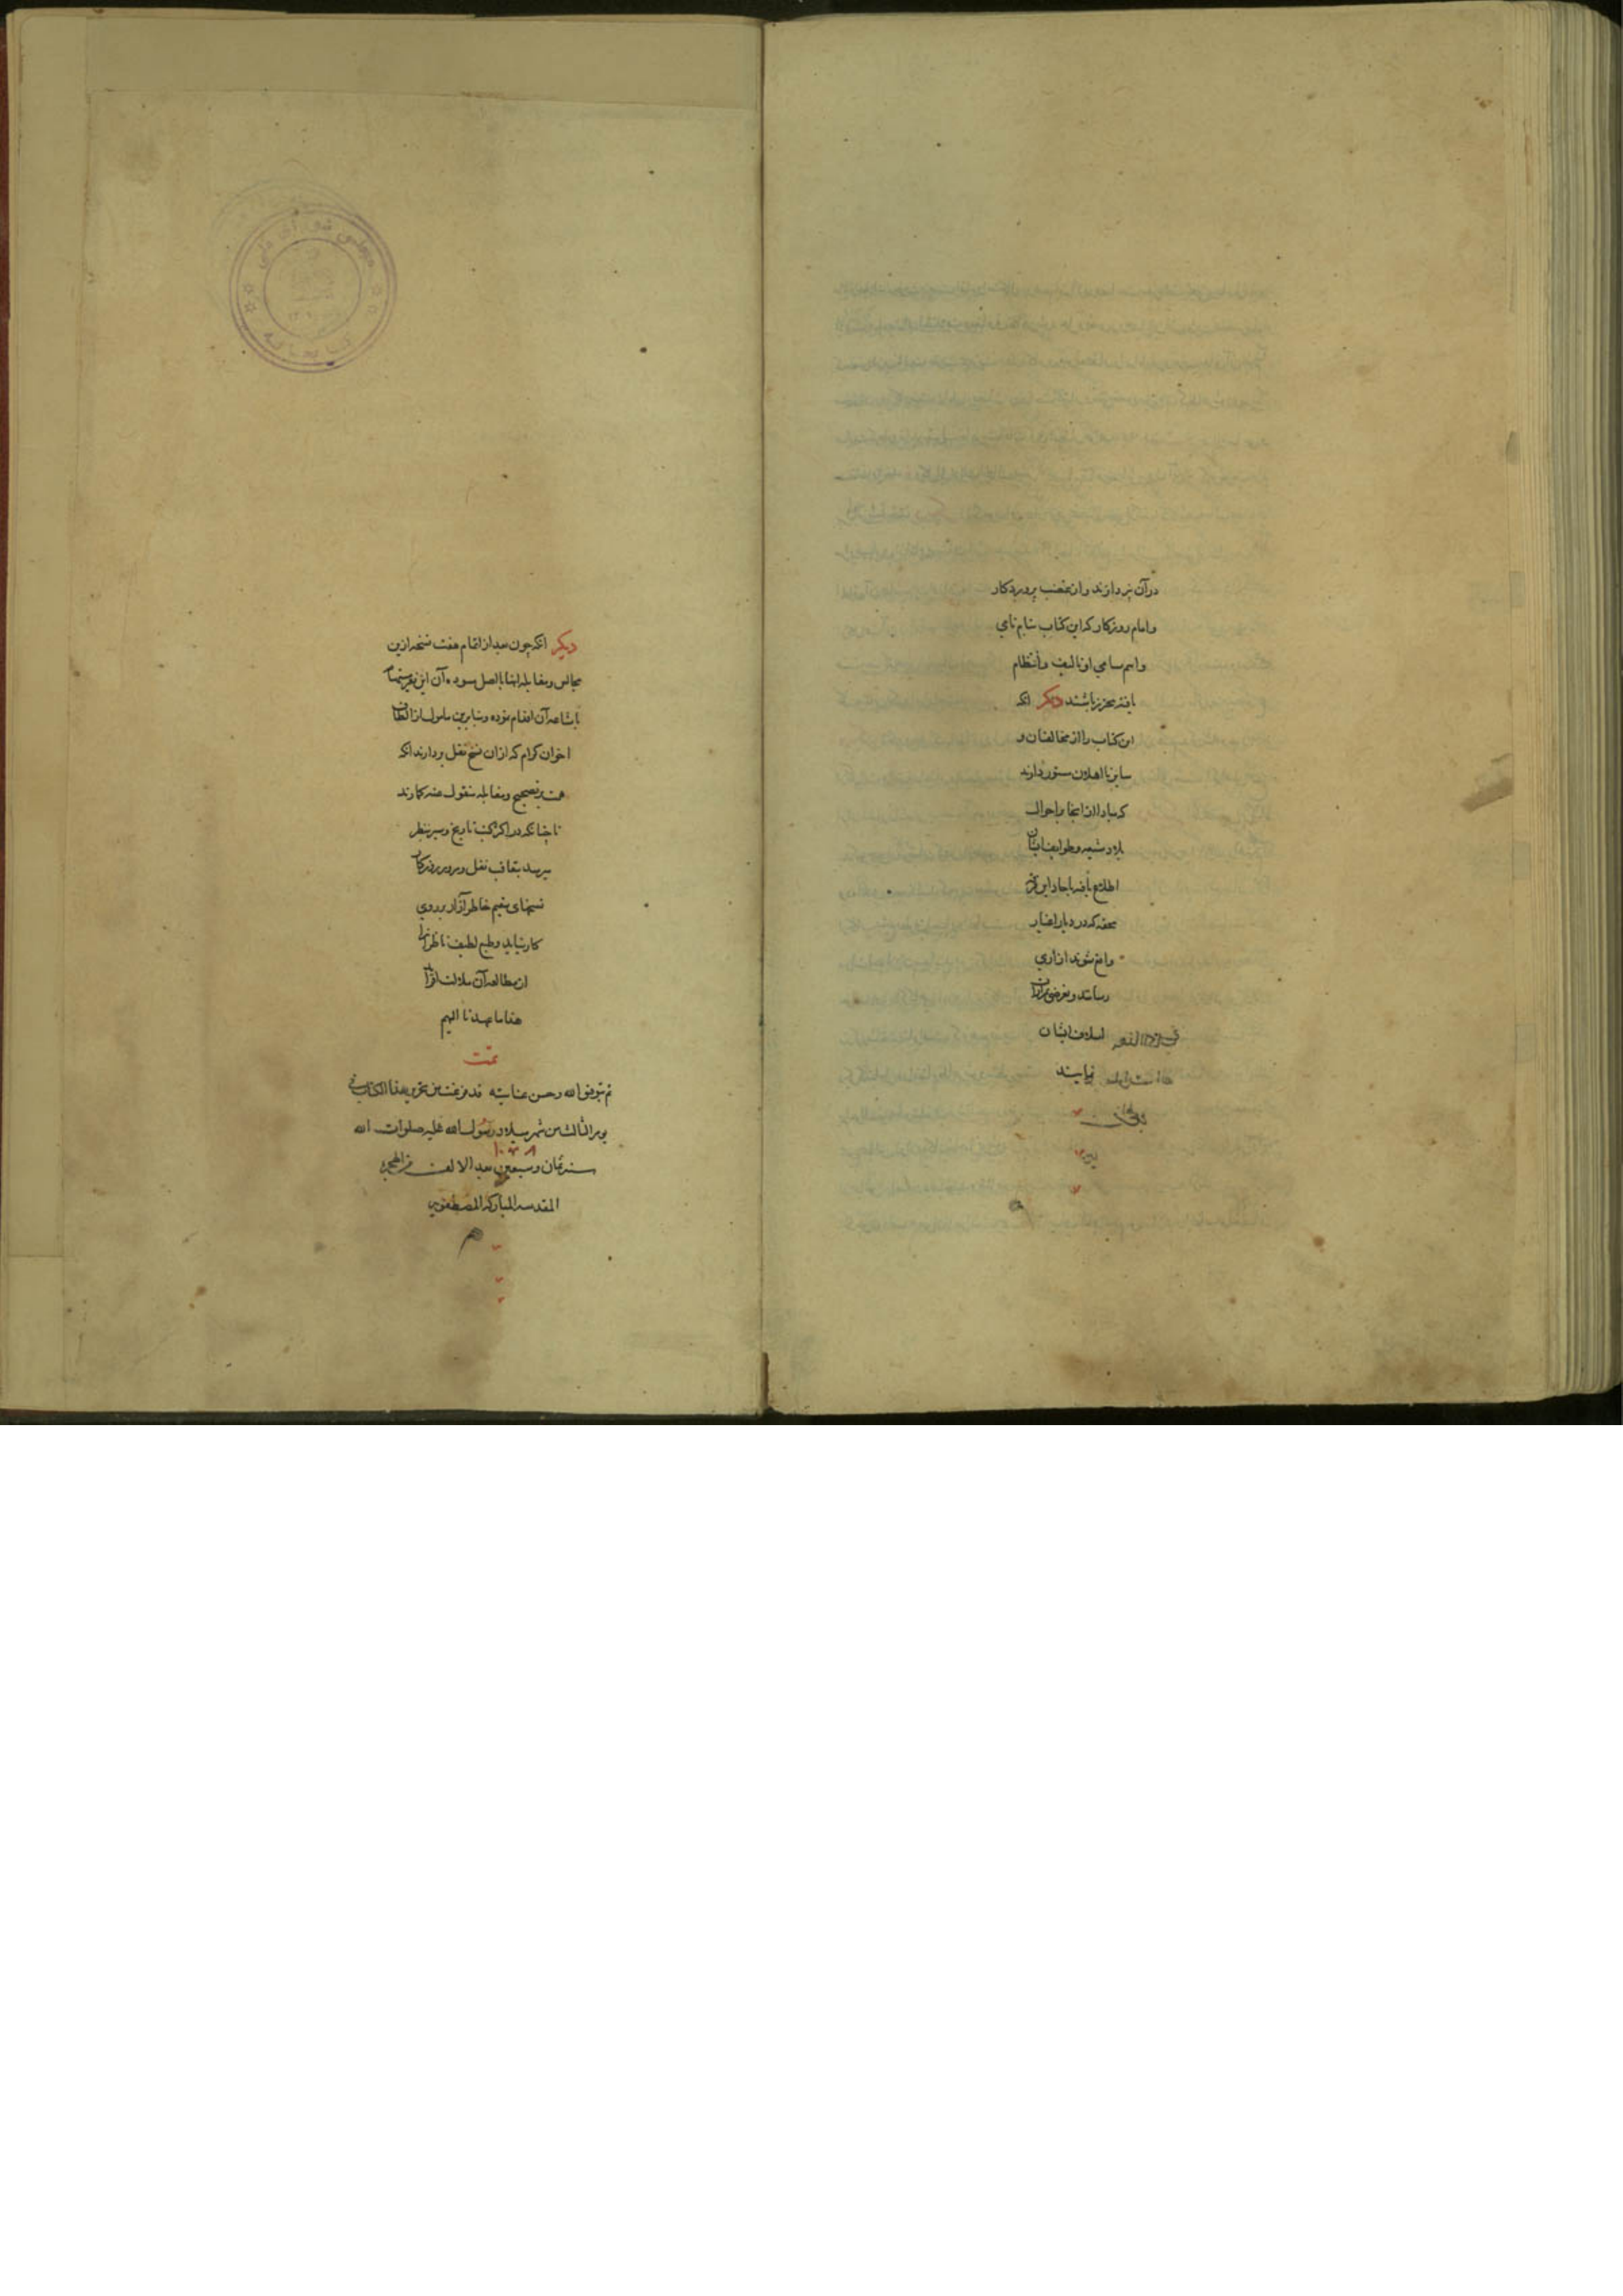 در آن نپردازند و از غضب پروردکار
و امام روزکار که این کتاب بنام نامی
و اسم سامی او تالیف و انتظام
یافته محترز باشند دیکر انکه
این کتاب را از مخالفان و
سایر نااهلان مستور دارند
که مبادا از انجا باحوال
بلاد شیعه و طوایف ایشان
اطلاع یافته باحاد این
محقه که در دیار اغیار
واقع شوند ازاری
رسانند و بغرض
اسلاف ایشان
نمایند
دیکر انکه چون بعد از اتمام هفت نسخه ازین
مجالس و مقابله انها با اصل مسوده آن این فقیر
باشاعه آن اقدام نموده و بنابرین مامول از الطاف
اخوان کرام که ازان نسخ نقل بردارند انکه
همت بر تصحیح و مقابله منقول عنه کمارند
تا چنانکه در اکثر کتب تاریخ و سیر بنظر
میرسد بتعاقب نقل و مرور روزکار
نسخهای سقیم خاطر آزار بر روی
کار نیاید و طبع لطیف ناظرانرا
از مطالعه آن ملالت نیفزاید
هذا ما عهدنا الیهم
تمت
تم بتوفیق الله و حسن عنایته قد فرغت من تحریر هذا الکتاب فی
یوم الثالث من شهر میلاد رسول الله علیه صلوات الله
۱۰۷۸
سنه ثمان و سبعین بعد الالف من الهجریه
المقدسه المبارکه المصطفویه
م
مجلس شورای ملی
کتابخانه